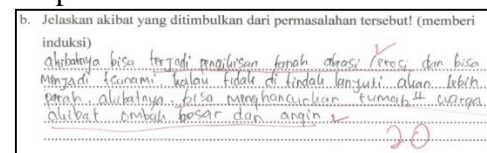 b. Jelaskan akibat yang ditimbulkan dari permasalahan tersebut! (memberi
induksi)
akibatnya bisa terjadi pengikisan tanah abrasi / erosi dan bisa
menjadi tsunami, kalau tidak di tindak lanjuti akan lebih
parah. akibatnya bisa menghancurkan rumah² warga
akibat ombak besar dan angin
20